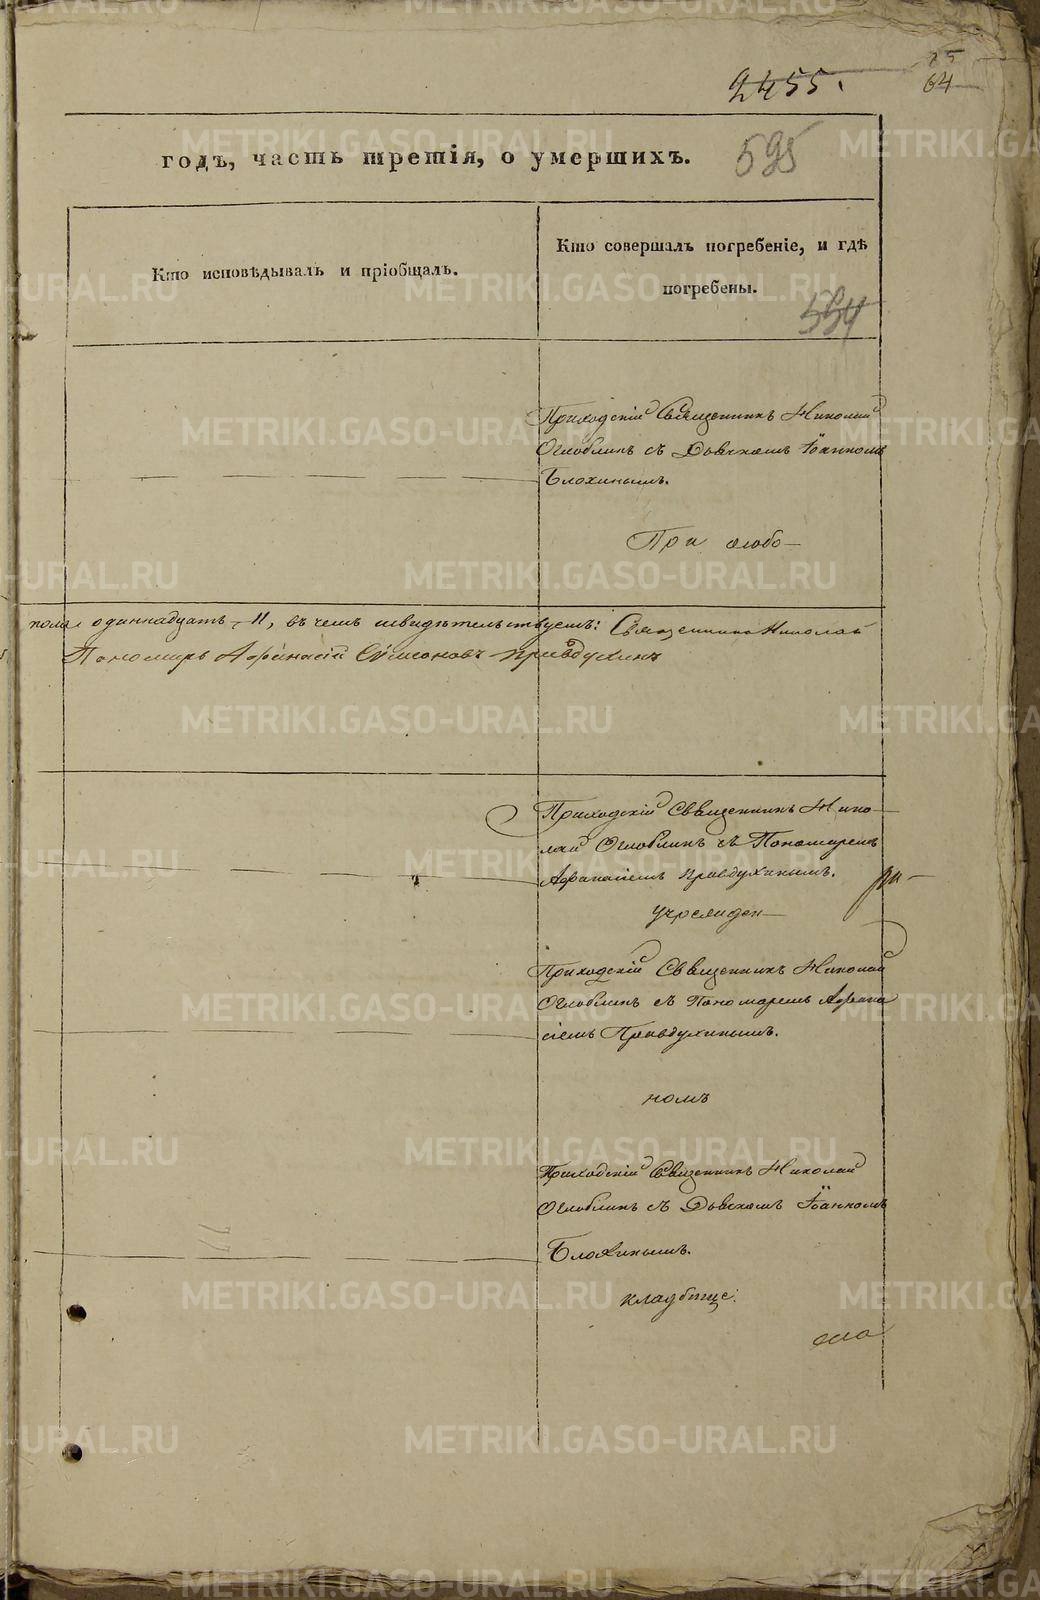 2455.
64
годъ, часть третія, о умершихъ.
595
Кто исповѣдывалъ и пріобщалъ.
Кто совершалъ погребеніе, и гдѣ
погребены.
594
Приходскій Священникъ Николай
Оглоблинъ съ Дьячкомъ Іоанномъ
Блохинымъ.
При особо
пола одиннадцать - 11, въ чемъ свидѣтельствуемъ: Священникъ Николай
Пономарь Афанасій Симеоновъ Правдухинъ
Приходскій Священникъ Нико-
лай Оглоблинъ съ Пономаремъ
Афанасіемъ Правдухинымъ.
учрежден-
Приходскій Священникъ Николай
Оглоблинъ съ Пономаремъ Афана
сіемъ Правдухинымъ.
номъ
Приходскій Священникъ Николай
Оглоблинъ съ Дьячкомъ Іоанномъ
Блохинымъ.
кладбище.
METRIKI.GASO-URAL.RU